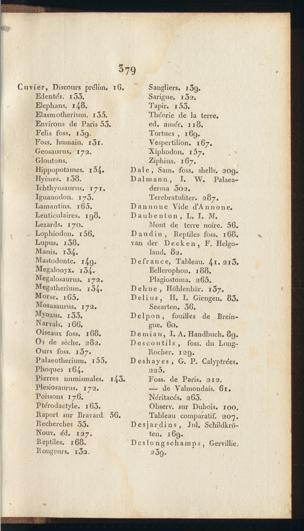 579
Cuvier, Discours prélim. 16.
Edentés. 133.
Elephans. 148.
Elasmotherium. 155.
Environs de Paris 53.
Felis foss. 139.
Foss. humain. 131.
Geosaurus. 172.
Gloutons.
Hippopotames. 154.
Hyènes. 138.
Ichthyosaurus. 171.
Iguanodon. 173.
Lamantins. 165.
Lenticulaires. 198.
Lezards. 170.
Lophiodon. 156.
Lupus. 138.
Manis. 134.
Mastodonte. 149.
Megalonyx. 134.
Megalosaurus. 172.
Megatherium. 134.
Morse. 163.
Mosasaurus. 172.
Myoxus. 133.
Narvals. 166.
Oiseaux foss. 168.
Os de sèche. 282.
Ours foss. 137.
Palaeotherium. 155.
Phoques 164.
Pierres nummismales. 143.
Plesiosaurus. 172.
Poissons 176.
Ptérodactyle. 163.
Raport sur Bravard 56.
Recherches 53.
Nouv. éd. 127.
Reptiles. 168.
Rongeurs. 132.
Sangliers. 159.
Sarigue. 132.
Tapir. 153.
Théorie de la terre.
ed. amér. 118.
Tortues, 169.
Vespertilion. 167.
Xiphodon. 157.
Ziphius. 167.
Dale, Sam. foss. shells. 209.
Dalmann, I. W. Palaea-
derma 302.
Terebratuliter. 287.
Dannone Vide d'Annone.
Daubenton, L. I. M.
Mont de terre noire. 56.
Daudin, Reptiles foss. 168.
van der Decken, F. Helgo-
land. 82.
Defrance, Tableau. 41. 213.
Bellerophon. 188.
Plagiostoma. 265.
Dehne, Höhlenbär. 137.
Delius, H. I. Giengen. 83.
Seearten. 36.
Delpon, fouilles de Brein-
gue. 60.
Demian, I. A. Handbuch. 89.
Descoutils, foss. du Long-
Rocher. 129.
Deshayes, G. P. Calyptrées.
225.
Foss. de Paris. 212.
— de Valmondais. 61.
Néritacés. 263.
Observ. sur Dubois. 100.
Tableau comparatif. 207.
Desjardins, Jul. Schildkrö-
ten. 169.
Deslongschamps, Gervillie.
239.